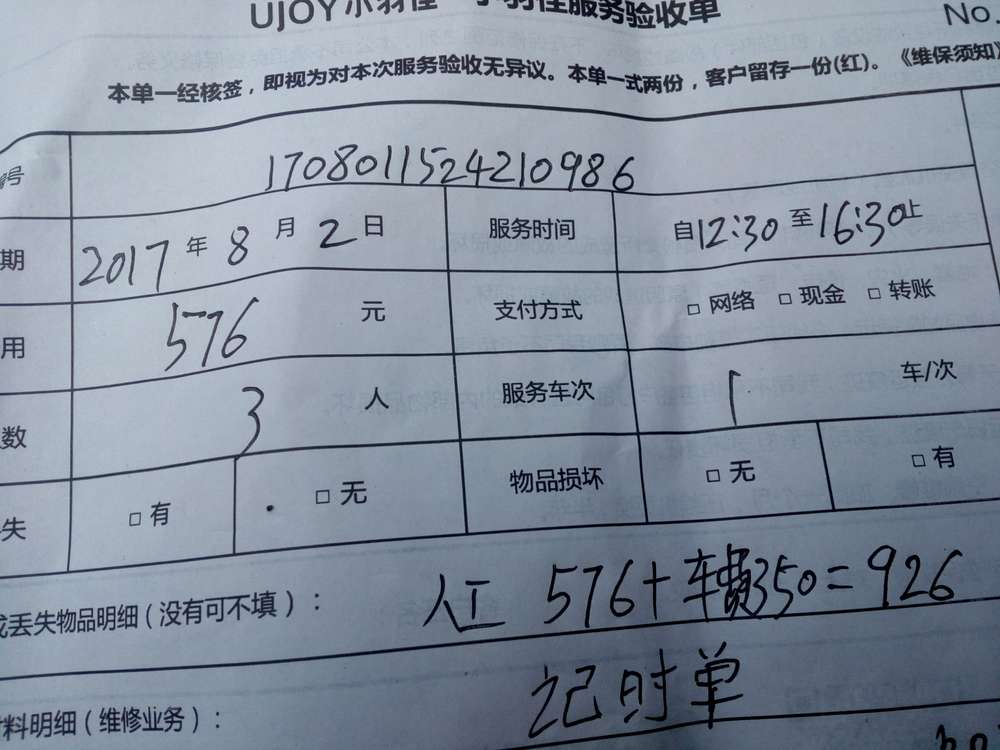 UJOY小羽佳 小羽佳服务验收单
No.
本单一经核签，即视为对本次服务验收无异议。本单一式两份，客户留存一份(红)。《维保须知》
号 1708011524210986
期 2017年8月2日 服务时间 自12:30至16:30止
用 576元 支付方式 □网络 □现金 □转账
数 3人 服务车次 1车/次
失 □有 □无 物品损坏 □无 □有
丢失物品明细（没有可不填）： 人工 576+车费350=926
料明细（维修业务）： 记时单